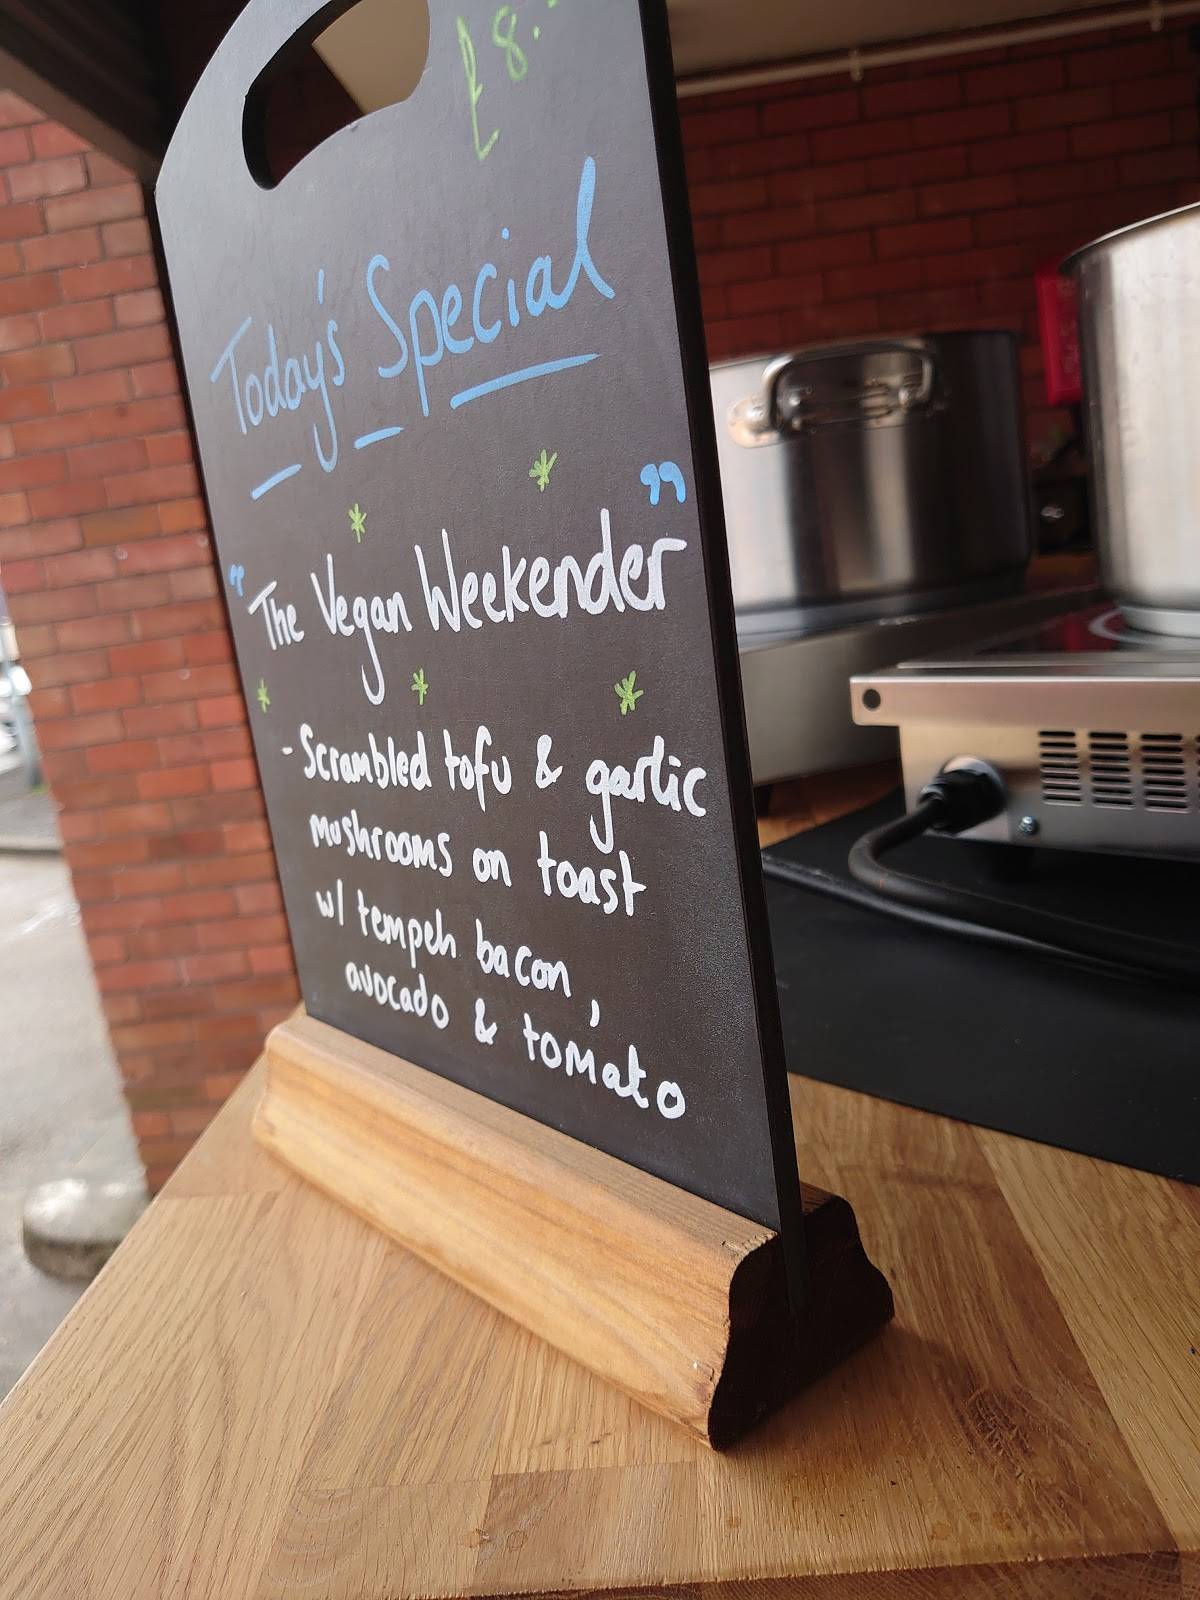 £8.
Today's Special
"The Vegan Weekender"
- Scrambled tofu & garlic
mushrooms on toast
w/ tempeh bacon,
avocado & tomato